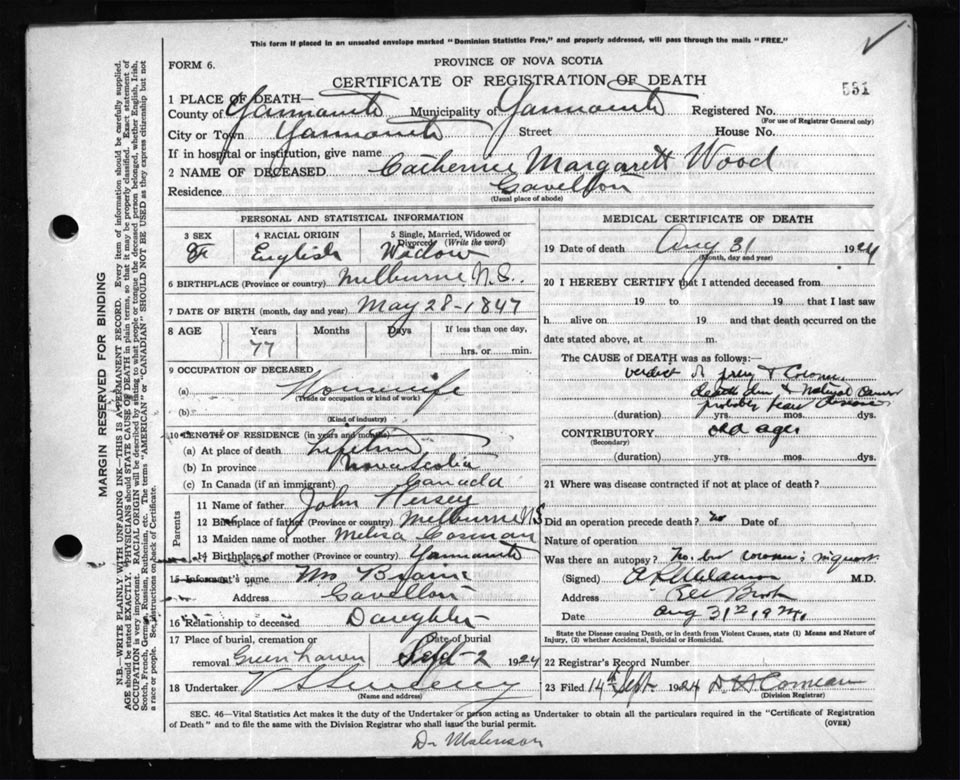 This form if placed in an unsealed envelope marked "Dominion Statistics Free," and properly addressed, will pass through the mails "FREE."
FORM 6.
PROVINCE OF NOVA SCOTIA
CERTIFICATE OF REGISTRATION OF DEATH
531
1 PLACE OF DEATH—
County of Yarmouth Municipality of Yarmouth Registered No.
(For use of Registrar General only)
City or Town Yarmouth Street House No.
If in hospital or institution, give name
2 NAME OF DECEASED Catherine Margarett Wood
Residence
(Usual place of abode)
PERSONAL AND STATISTICAL INFORMATION
3 SEX F
4 RACIAL ORIGIN English
5 Single, Married, Widowed or Divorced (Write the word) Widow
6 BIRTHPLACE (Province or country) Melburne N.S.
7 DATE OF BIRTH (month, day and year) May 28-1847
8 AGE Years Months Days If less than one day,
77 hrs. or min.
9 OCCUPATION OF DECEASED
(a) Housewife
(Trade or occupation or kind of work)
(b)
(Kind of industry)
10 LENGTH OF RESIDENCE (in years and months)
(a) At place of death Lifetime
(b) In province Nova Scotia
(c) In Canada (if an immigrant) Canada
Parents
11 Name of father John Hersey
12 Birthplace of father (Province or country) Melburne N S
13 Maiden name of mother
14 Birthplace of mother (Province or country) Yarmouth
15 Informant's name Mrs
Address
16 Relationship to deceased Daughter
17 Place of burial, cremation or Date of burial
removal Green haven Sept-2 1924
18 Undertaker V S Sweeny
(Name and address)
MEDICAL CERTIFICATE OF DEATH
19 Date of death Aug 31 1924
(Month, day and year)
20 I HEREBY CERTIFY that I attended deceased from
19 to 19 that I last saw
h alive on 19 and that death occurred on the
date stated above, at m.
The CAUSE of DEATH was as follows:
verdict of jury & Coroner
death due to Natural Causes
probably heart disease
(duration) yrs. mos. dys.
CONTRIBUTORY old age
(Secondary)
(duration) yrs. mos. dys.
21 Where was disease contracted if not at place of death?
Did an operation precede death? no Date of
Nature of operation
Was there an autopsy? No. but coroner's inquest
(Signed) M.D.
Address
Date Aug 31st 1924
State the Disease causing Death, or in death from Violent Causes, state (1) Means and Nature of
Injury, (2) whether Accidental, Suicidal or Homicidal.
22 Registrar's Record Number
23 Filed 14th Sept 1924 D H Comeau
(Division Registrar)
SEC. 46—Vital Statistics Act makes it the duty of the Undertaker or person acting as Undertaker to obtain all the particulars required in the "Certificate of Registration
of Death" and to file the same with the Division Registrar who shall issue the burial permit.
(OVER)
MARGIN RESERVED FOR BINDING
N.B.—WRITE PLAINLY WITH UNFADING INK—THIS IS A PERMANENT RECORD. Every item of information should be carefully supplied.
AGE should be stated EXACTLY. PHYSICIANS should STATE CAUSE OF DEATH in plain terms, so that it may be properly classified. Exact statement of
OCCUPATION is very important. RACIAL ORIGIN will be described by stating to what people or tongue the deceased person belonged, whether English, Irish,
Scotch, French, German, Russian, Ruthenian, etc. The terms "AMERICAN" or "CANADIAN" SHOULD NOT BE USED as they express citizenship but not
a race or people. See instructions on back of Certificate.